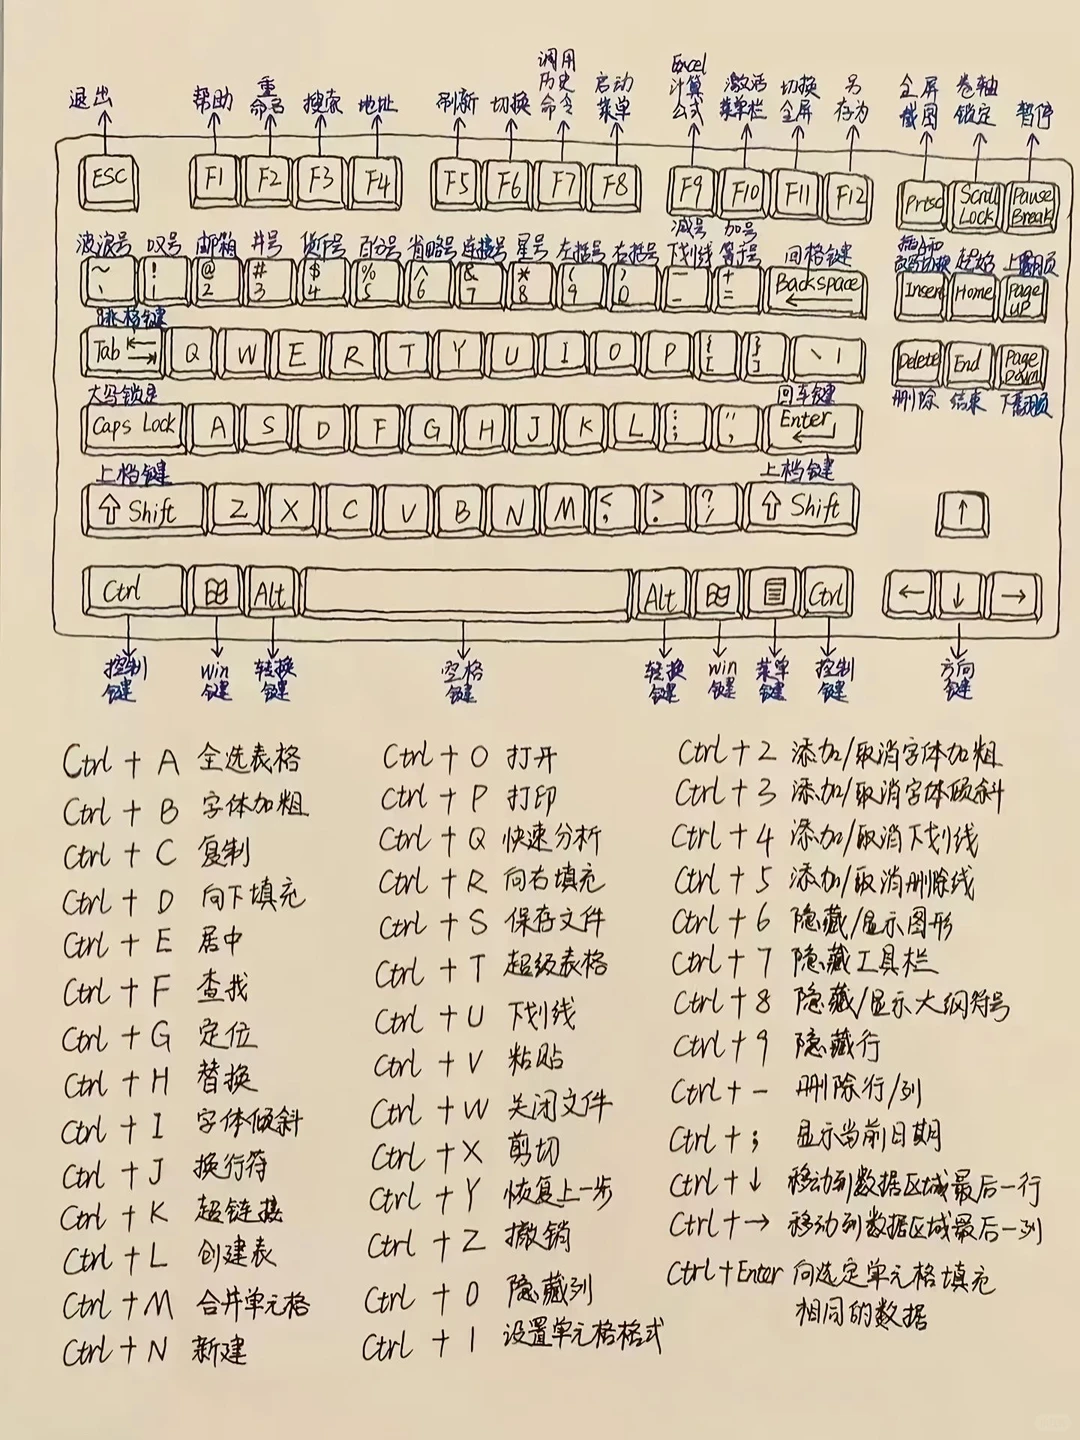 退出 帮助 重命名 搜索 地址 刷新 切换 调用历史命令 启动菜单 Excel计算公式 激活菜单栏 切换全屏 另存为 全屏截图 卷轴锁定 暂停
ESC F1 F2 F3 F4 F5 F6 F7 F8 F9 F10 F11 F12 Prtsc Scroll Lock Pause Break
波浪号 叹号 邮箱 井号 货币号 百分号 省略号 连接号 星号 左括号 右括号 减号下划线 加号等于号 回格键 插入和改写切换 起始 上翻页
~ 、 ! 1 @ 2 # 3 $ 4 % 5 ^ 6 & 7 * 8 ( 9 ) 0 — - + = Backspace Insert Home Page UP
跳格键
Tab Q W E R T Y U I O P { [ } ] \ | Delete End Page Down
删除 结束 下翻页
大写锁定 回车键
Caps Lock A S D F G H J K L : ; " , Enter
上档键 上档键
⇧ Shift Z X C V B N M < , > . ? / ⇧ Shift ↑
Ctrl Alt Alt Ctrl ← ↓ →
控制键 win键 转换键 空格键 转换键 win键 菜单键 控制键 方向键
Ctrl + A 全选表格
Ctrl + B 字体加粗
Ctrl + C 复制
Ctrl + D 向下填充
Ctrl + E 居中
Ctrl + F 查找
Ctrl + G 定位
Ctrl + H 替换
Ctrl + I 字体倾斜
Ctrl + J 换行符
Ctrl + K 超链接
Ctrl + L 创建表
Ctrl + M 合并单元格
Ctrl + N 新建
Ctrl + O 打开
Ctrl + P 打印
Ctrl + Q 快速分析
Ctrl + R 向右填充
Ctrl + S 保存文件
Ctrl + T 超级表格
Ctrl + U 下划线
Ctrl + V 粘贴
Ctrl + W 关闭文件
Ctrl + X 剪切
Ctrl + Y 恢复上一步
Ctrl + Z 撤销
Ctrl + 0 隐藏列
Ctrl + 1 设置单元格格式
Ctrl + 2 添加/取消字体加粗
Ctrl + 3 添加/取消字体倾斜
Ctrl + 4 添加/取消下划线
Ctrl + 5 添加/取消删除线
Ctrl + 6 隐藏/显示图形
Ctrl + 7 隐藏工具栏
Ctrl + 8 隐藏/显示大纲符号
Ctrl + 9 隐藏行
Ctrl + - 删除行/列
Ctrl + ; 显示当前日期
Ctrl + ↓ 移动到数据区域最后一行
Ctrl + → 移动到数据区域最后一列
Ctrl + Enter 向选定单元格填充
相同的数据